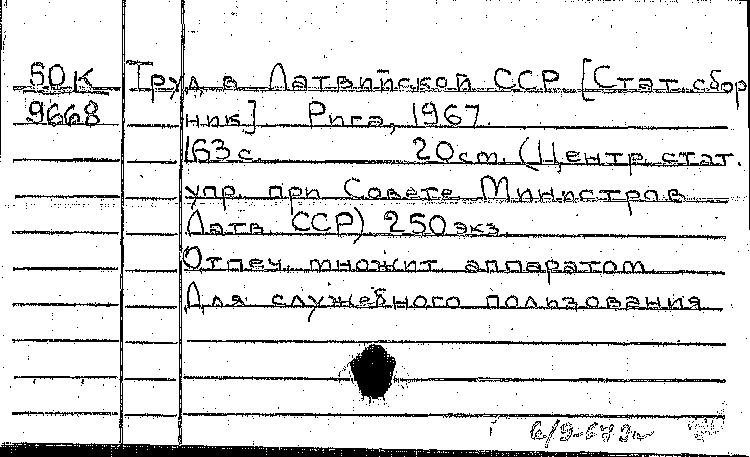 50К Труд в Латвийской ССР [Стат. сбор
9668 ник]. Рига, 1967.
163с. 20см. (Центр. стат.
упр. при Совете Министров
Латв. ССР) 250экз.
Отпеч. множит. аппаратом
Для служебного пользования